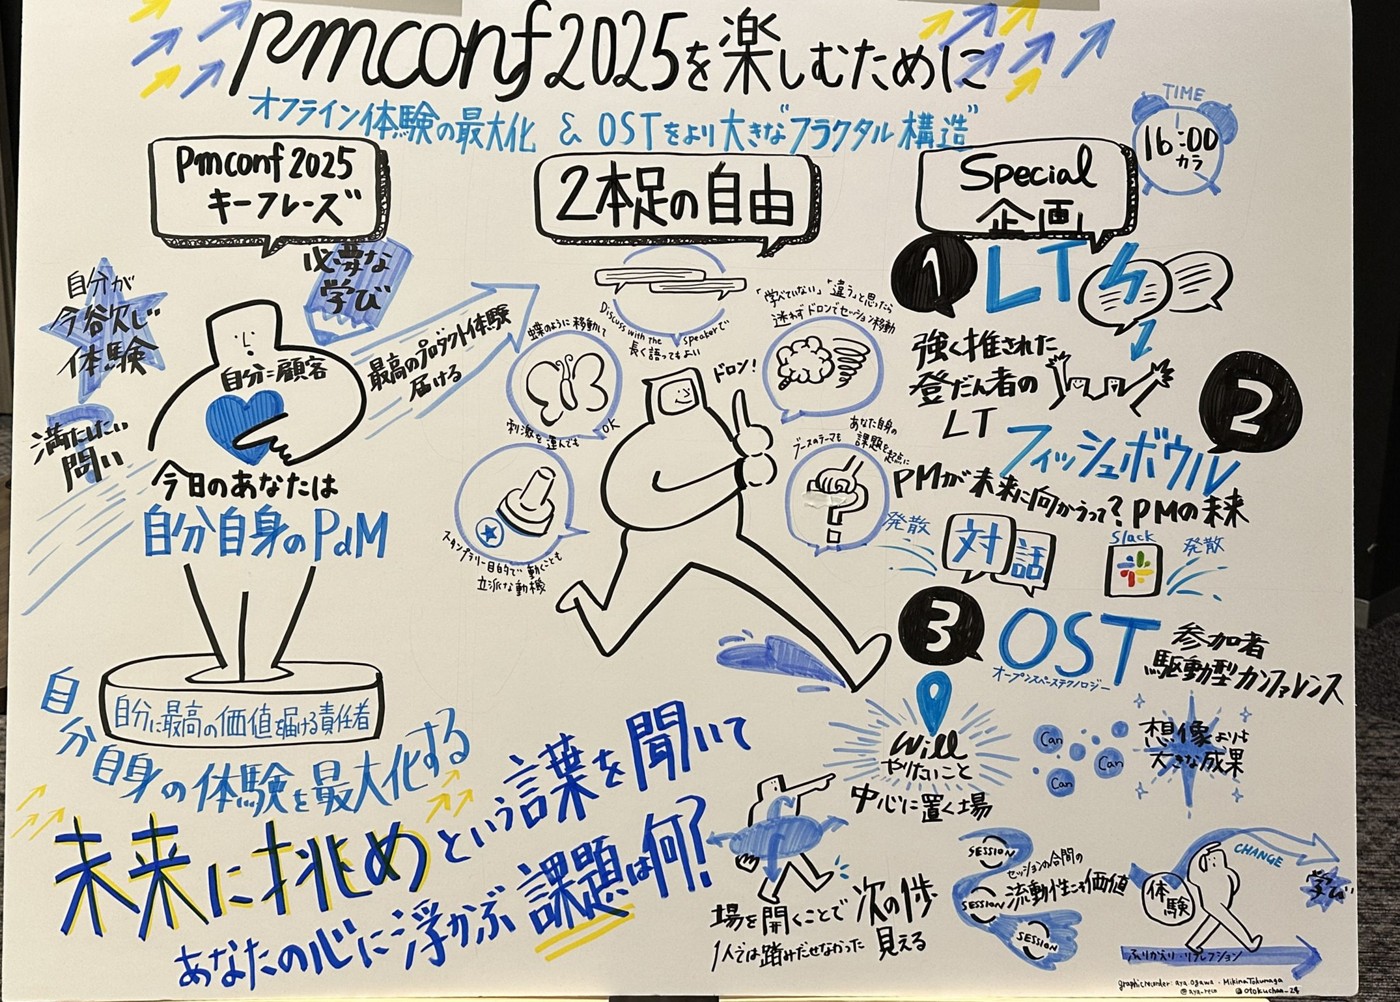 pmconf2025を楽しむために
オフライン体験の最大化 & OSTをより大きな"フラクタル構造"
pmconf2025
キーフレーズ
自分が
今欲しい
体験
必要な
学び
満たしたい
問い
自分=顧客
最高のプロダクト体験
届ける
今日のあなたは
自分自身のPdM
自分に最高の価値を届ける責任者
自分自身の体験を最大化する
未来に挑めという言葉を聞いて
あなたの心に浮かぶ課題は何?
2本足の自由
Discuss with the speakerで
長く語ってもよい
蝶のように移動して
刺激を運んでも
OK
「学べていない」「違う」と思ったら
迷わずドロンでセッション移動
ドロン!
スタンプラリー目的で動くことも
立派な動機
あなた自身の
課題を起点に
ブースのテーマも
Special
企画
TIME
16:00
カラ
1
LTs
強く推された
登だん者の
LT
2
フィッシュボウル
PMが未来に向かうって? PMの未来
発散
対話
slack
発散
3
OST
オープンスペーステクノロジー
参加者
駆動型カンファレンス
Will
やりたいこと
中心に置く場
Can
Can
Can
想像よりも
大きな成果
場を開くことで 次の1歩
1人では踏みだせなかった 見える
SESSION
SESSION
SESSION
セッションの合間の
流動性こそ価値
体験
CHANGE
学び
ふりかえり・リフレクション
graphicrecorder: aya ogawa・Mikina Tokunaga
@otokuchan_24